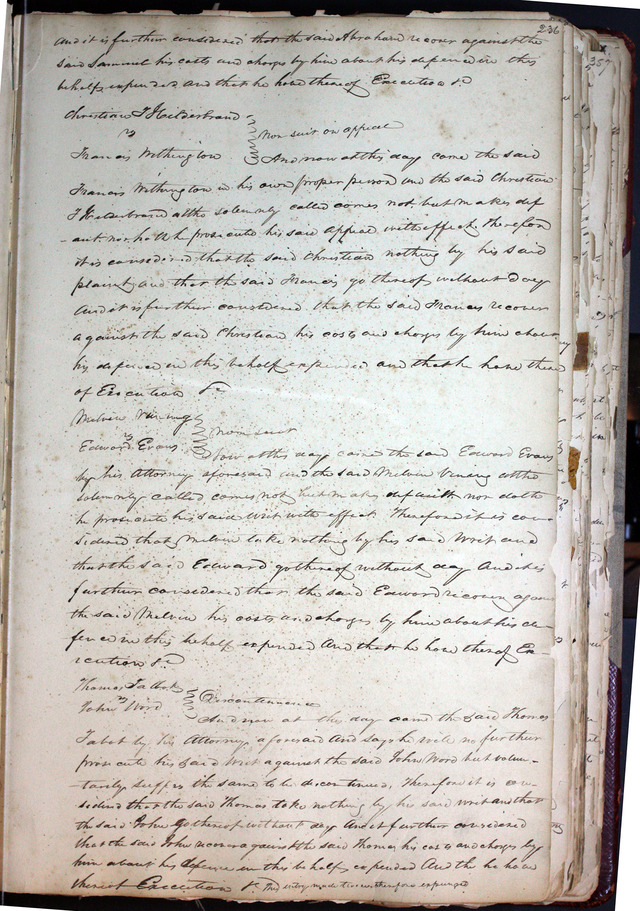 236
And it is further considered that the said Abraham recover against the
said Samuel his costs and charges by him about his defence in this
behalf expended and that he have thereof Execution &c
Christian T Hilderbrand
vs
Non suit on appeal
Francis Withington
And now at this day came the said
Francis Withington in his own proper person and the said Christian
T Hilderbrand altho solemnly called comes not but makes def
-ault nor hath he prosecute his said appeal with effect. Therefore
it is considered that the said Christian nothing by his said
plaint and that the said Francis go thereof without day
And it is further considered that the said Francis recover
against the said Christian his costs and charges by him about
his defence in this behalf expended and that he have there
of Execution &c
Melvin Vining
vs
Non suit
Edward Evans
Now at this day came the said Edward Evans
by his Attorney aforesaid and the said Melvin Vining altho
solemnly called comes not but makes default nor doth
he prosecute his said writ with effect Therefore it is con-
sidered that Melvin take nothing by his said Writ and
that the said Edward go thereof without day And it is
further considered that the said Edward recover again
the said Melvin his costs and charges by him about his de
fence in this behalf expended And that he have thereof Ex
ecution &c
Thomas
vs
Discontinuance
John Word
And now at this day came the said Thomas
Tabot by his Attorney aforesaid And says he will no further
prosecute his said Writ against the said John Word but volun-
tarily suffers the same to be discontinued, Therefore it is con-
sidered that the said Thomas take nothing by his said writ and that
the said John go thereof without day And it further considered
that the said John recover against the said Thomas his costs and charges by
him about his defence in this behalf expended And the he have
thereof Execution &c This entry made twice therefore expunged
357